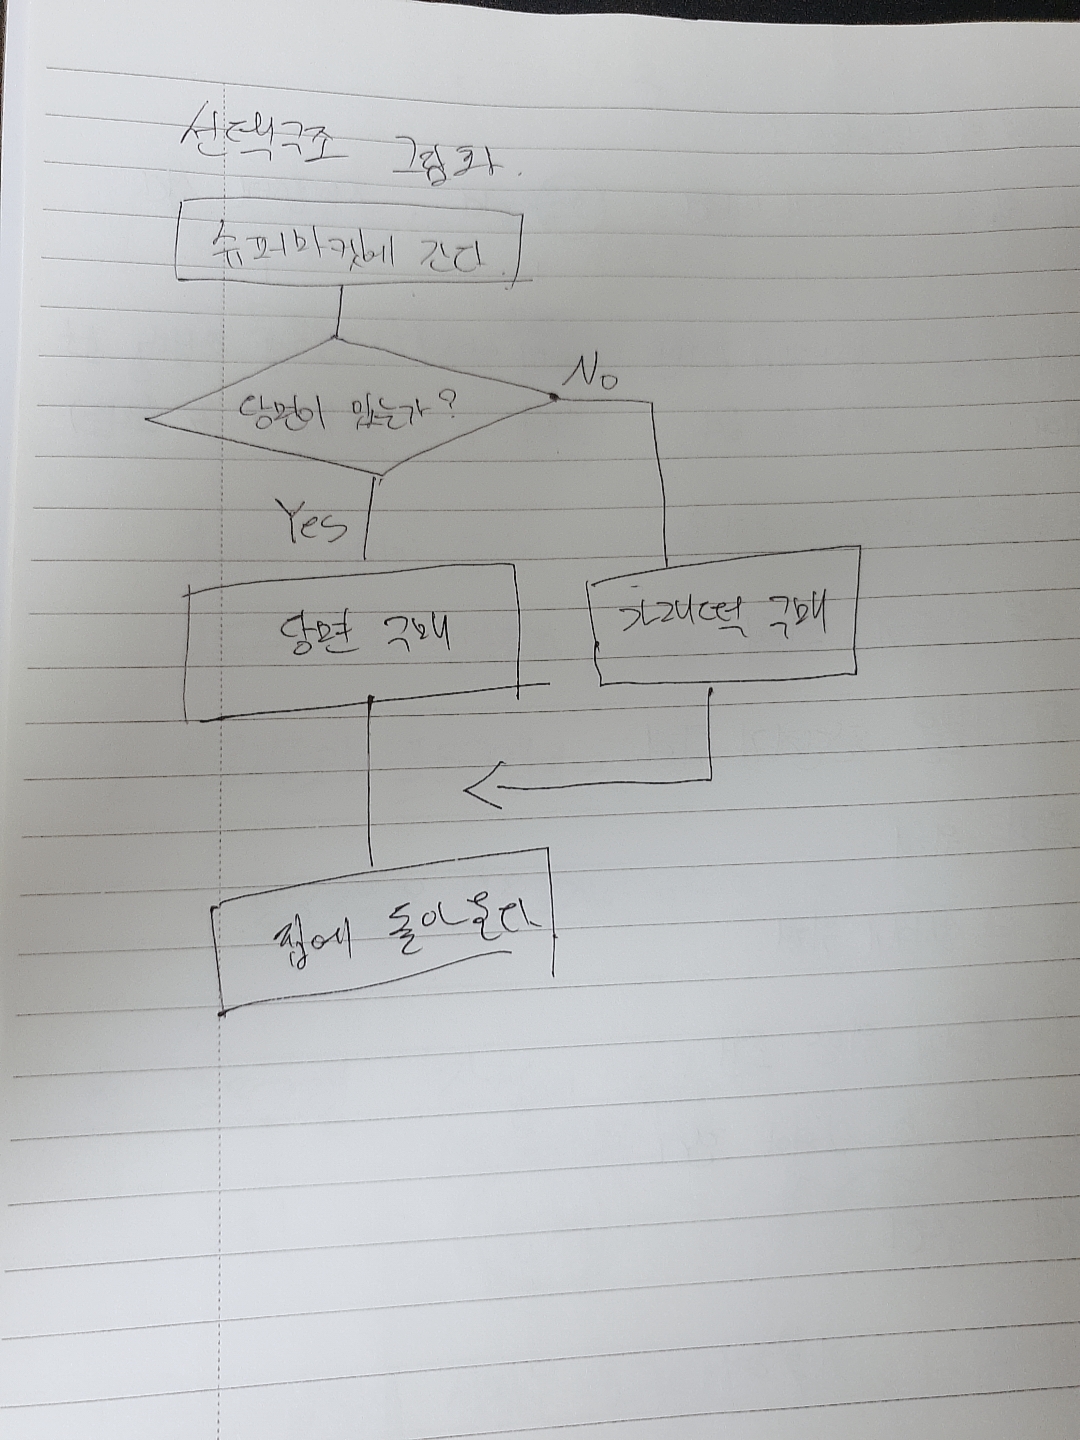 선택구조 그림화.
슈퍼마켓에 간다.
No
당면이 있는가?
Yes
당면 구매
가래떡 구매
집에 돌아온다